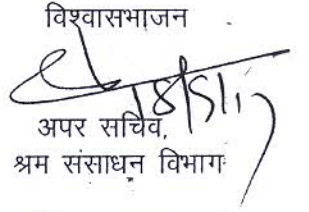 विश्वासभाजन
18/5/17
अपर सचिव,
श्रम संसाधन विभाग